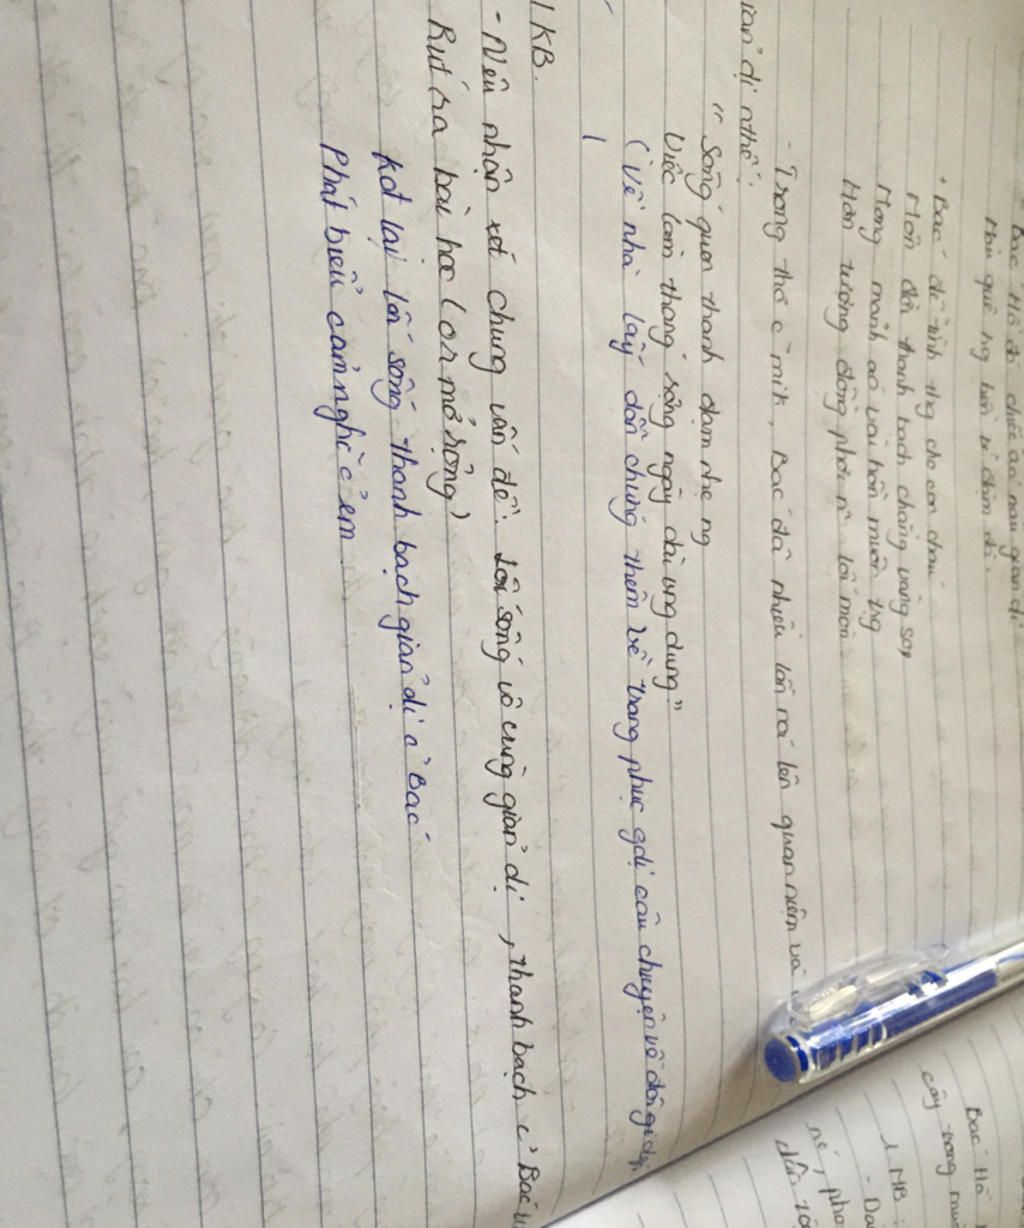 Bác Hồ đó chiếc áo nâu giản dị
Màu quê hg bền bỉ đậm đà.
• Bác để tình thg cho con cháu
Một đời thanh bạch chẳng vàng son
Mong manh áo vải hồn muôn trg
Hơn tượng đồng phơi n~ lối mòn
- Trong thơ c mik, Bác đã nhiều lần nói lên quan niệm và
giản dị nthế:
"Sống quen thanh đạm nhẹ ng
Việc làm tháng rộng ngày dài ung dung"
(Về nhà lấy dẫn chứng thêm về trang phục gdị câu chuyện về đôi gi dép
1 KB.
- Nêu nhận xét chung vấn đề: lối sống vô cùng giản dị, thanh bạch c' Bác
Rút ra bài học (or mở rộng)
Kđ lại lối sống thanh bạch giản dị c' Bác
Phát biểu cảm nghĩ c' em
Bác Hồ
cây trong
1 MB
nc, pho
dân tộ